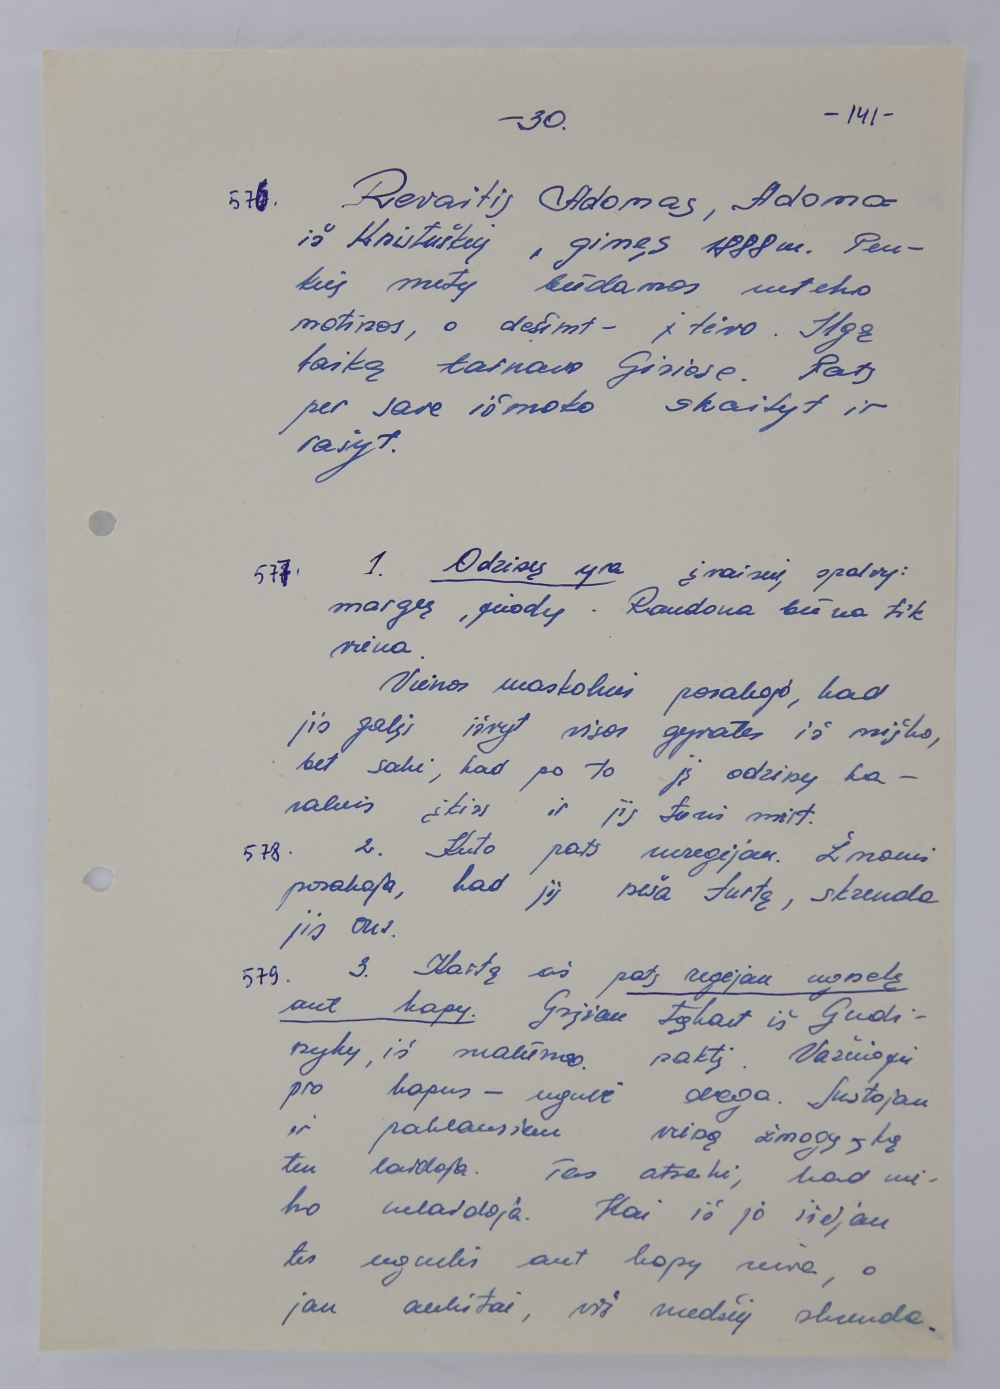 -30.
-141-
576. Revaitis Adomas, Adomo
iš Kristuškių, gimęs 1888 m. Pen-
kių metų būdamas neteko
motinos, o dešimt - ir tėvo. Ilgą
laiką tarnavo Giriose. Pats
per save išmoko skaityt ir
rašyt.
577. 1. Odzisų yra įvairių spalvų:
margų, juodų. Raudona būna tik
viena.
Vienas maskolius pasakojo, kad
jis galįs išvyt visas gyvates iš miško,
bet sakė, kad po to jį odzisų ka-
ralius įkirs ir jis turės mirt.
578. 2. Kuto pats neregėjau. Žmonės
pasakoja, kad jis neša turtą, skrenda
jis oru.
579. 3. Kartą aš pats regėjau ugnelę
ant kapų. Grįžau tąkart iš
iš malūno naktį. Važiuoju
pro kapus - ugnelė dega. Sustojau
ir paklausiau vieną žmogų, ką
ten laidoja. Tas atsakė, kad nie-
ko nelaidoja. Kai iš jo išėjau
tos ugnelės ant kapų nėra, o
jau aukštai, virš medžių skrenda.